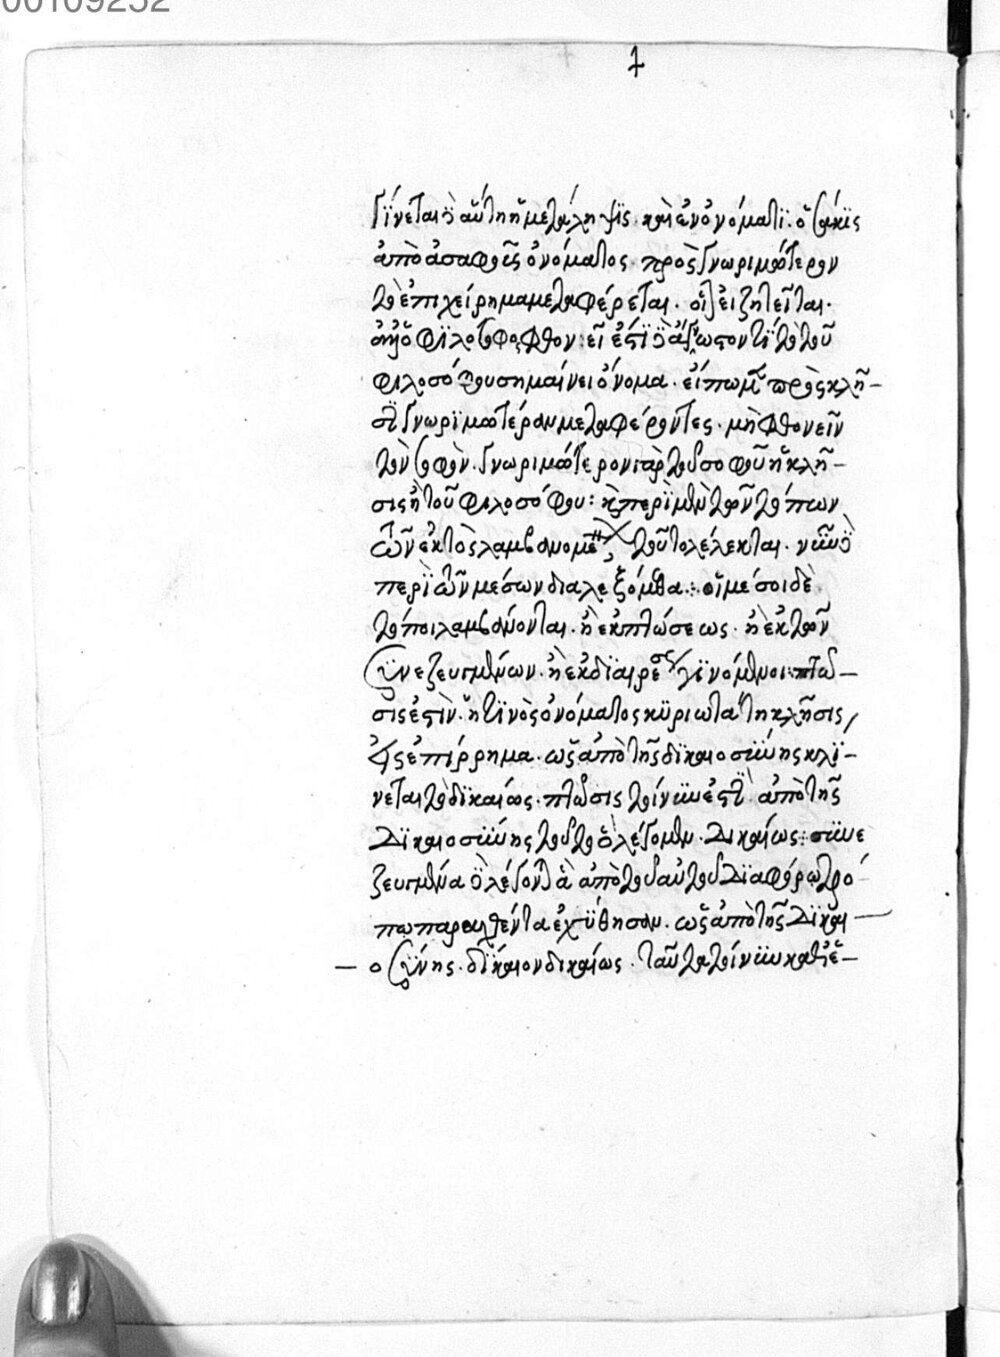 00109252
γίνεται δὲ αὕτη ἡ μετάληψις. καὶ ἐν ὀνόματι. ὁσάκις
ἀπὸ ἀσαφοῦς ὀνόματος. πρὸς γνωριμώτερον
τὸ ἐπιχείρημα μεταφέρεται. οἷον εἰ ζητεῖται.
φιλόσοφος φθονεῖ ἔστι δὲ τὸ τοῦ
φιλοσόφου σημαίνει ὄνομα. εἴπωμεν πρὸς κλῆ-
σιν γνωριμωτέραν μεταφέροντες. μὴ φθονεῖν
τὸν σοφὸν. γνωριμώτερον γὰρ τοῦ σοφοῦ ἡ κλῆ-
σις ἢ τοῦ φιλοσόφου: καὶ περὶ μὲν τῶν τόπων
τῶν ἐκτὸς λαμβανομένων τοῦτο λέλεκται. νῦν δὲ
περὶ τῶν μέσων διαλεξόμεθα:. οἱ μέσοι δὲ
τόποι λαμβάνονται. ἢ ἐκ πτώσεως. ἢ ἐκ τῶν
συνεζευγμένων. ἢ ἐκ διαιρέσεως γινόμενοι: πτῶ-
σις ἐστὶν. ἥ τινὸς ὀνόματος κυριωτάτη κλῆσις
εἰς ἐπίρρημα. ὡς ἀπὸ τῆς δικαιοσύνης κλί-
νεται τὸ δικαίως. πτῶσις τοίνυν ἐστὶ ἀπὸ τῆς
δικαιοσύνης τοῦτο ὃ λέγομεν. δικαίως: συνε
ζευγμένα δὲ λέγονται ἃ ἀπὸ τοῦ αὐτοῦ διαφόρω τρό
πω παραχθέντα ἐχύθησαν. ὡς ἀπὸ τῆς δικαι-
οσύνης. δίκαιον δικαίως. ταῦτα τοίνυν καθ' ἑ-